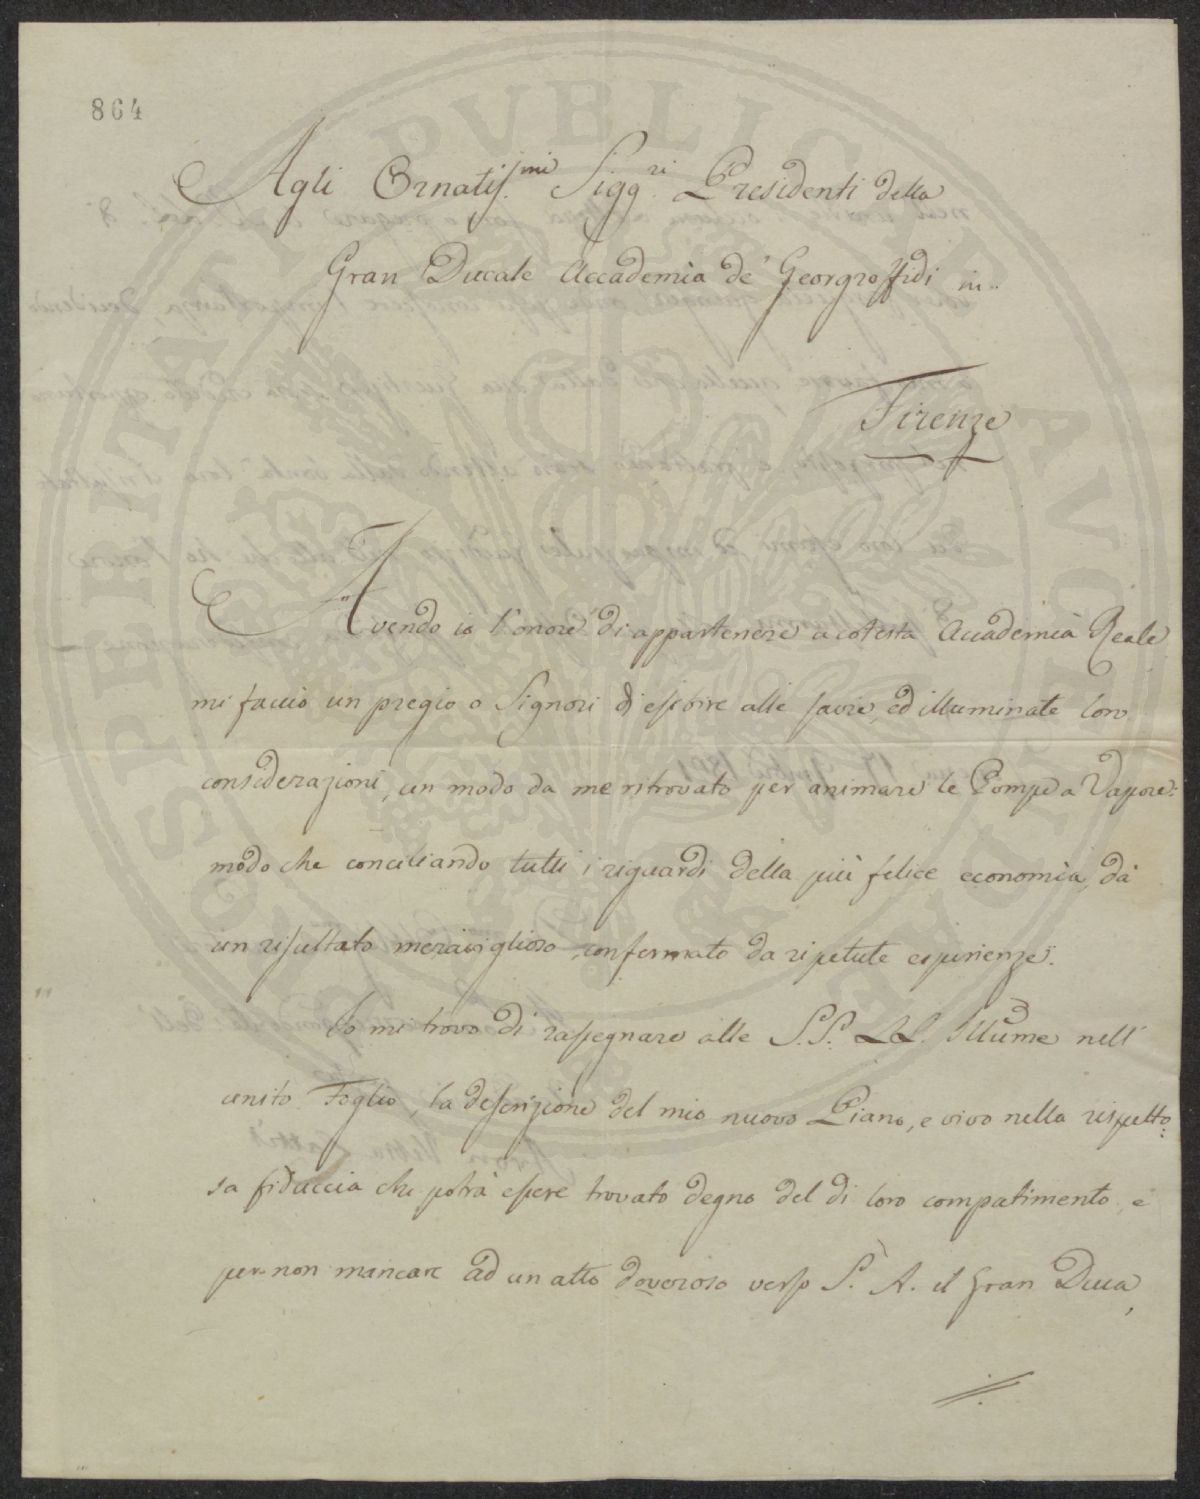 864
Agli Ornatis.mi Sigg.ri Presidenti della
Gran Ducale Accademia de' Georgroffidi in..
Firenze
Avendo io l'onore di appartenere a cotesta Accademia Reale
mi faccio un pregio o Signori di esebire alle savie, ed illuminate loro
considerazioni, un modo da me ritrovato per animare le Pompe a Vapore:
modo che conciliando tutti i riguardi della più felice economia, dà
un risultato meraviglioso, confermato da ripetute esperienze.
Io mi trovo di rassegnare alle S.S. LL. Illume nell'
unito Foglio, la descrizione del mio nuovo Piano, e vivo nella rispetto:
sa fiduccia che potrà essere trovato degno del di loro compatimento, e
per non mancare ad un atto doveroso verso S. A. il Gran Duca,